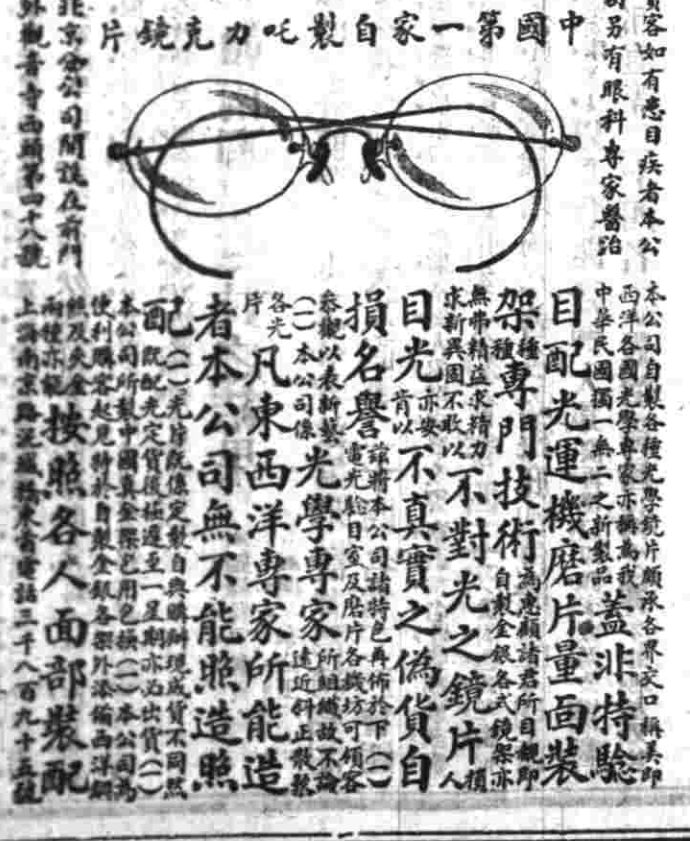 中國第一家自製吒力克鏡片
客如有患目疾者本公
司另有眼科專家醫治
本公司自製各種光學鏡片頗承各界交口稱美即
西洋各國光學專家亦稱為我
中華民國獨一無二之新製品蓋非特驗
目配光運機磨片量面裝
架種種專門技術為惠顧諸君所目覩即自製金銀各式鏡架亦
無弗精益求精力求新異固不敢以不對光之鏡片損人
目光亦安肯以不真實之偽貨自
損名譽將本公司諸特色再佈於下(一)電光驗目室及磨片各機坊可領客
參觀以表新藝(一)本公司係光學專家所組織故不論遠近斜正散聚
各光片凡東西洋專家所能造
者本公司無不能照造照
配(一)光皆既係定製自與購辦現成貨不同然既配光定貨後極遲至一星期亦必出貨(一)
本公司所製中國真金架包用包換(一)本公司為
便利購客起見特於自製金銀各架外添備西洋鋼
絲及夾金兩種亦能按照各人面部裝配
北京分公司開設在前門
外觀音寺西頭第四十八號
上海南京路泥城橋東首電話三千八百九十五號